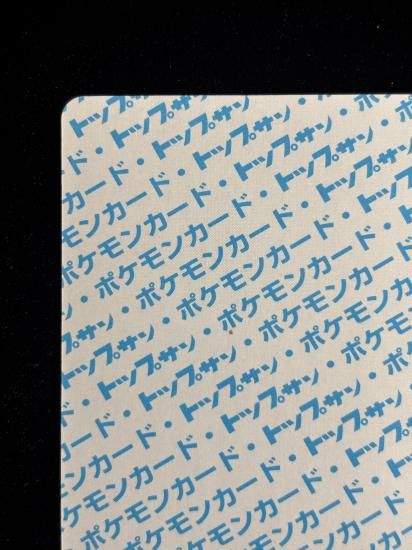 トップサ
ド・トップサン
モンカード・トップサン・ポ
ポケモンカード・トップサン・ポ
・ポケモンカード・トップサン
サン・ポケモンカード・トップサン
トップサン・ポケモンカード・トップ
ド・トップサン・ポケモンカード・
カード・トップサン・ポケモンカード
ンカード・トップサン・ポケモン
ポケモンカード・トップサン・ポ
ポケモンカード・トップサン
ポケモンカード・トップ
ポケモンカード